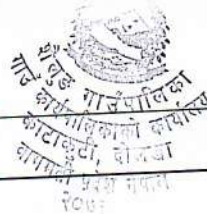 शैलुङ गाउँपालिका
गाउँ कार्यपालिकाको कार्यालय
काटाकुटी, दोलखा
बागमती प्रदेश नेपाल